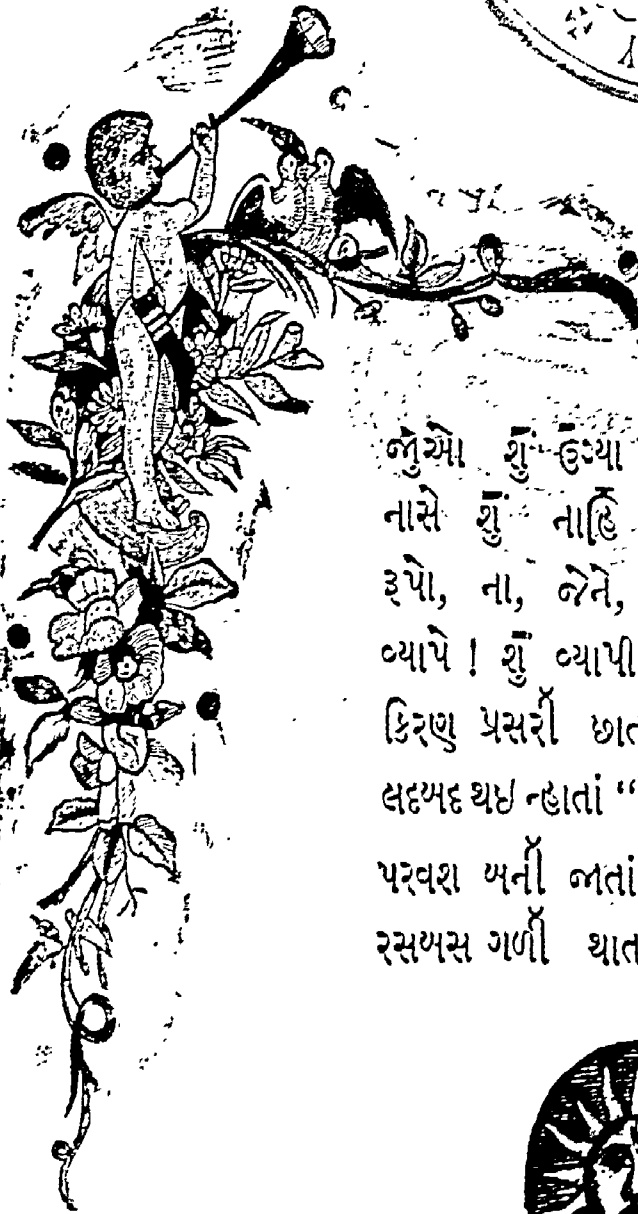 જુઓ શું ઉગ્યા
નાસે શું નાહિં
રૂપો, ના, જેને,
વ્યાપે ! શું વ્યાપી
કિરણ પ્રસરી છાત
લદબદ થઇ ન્હાતાં “
પરવશ બની જાતાં
રસબસ ગળી થાત